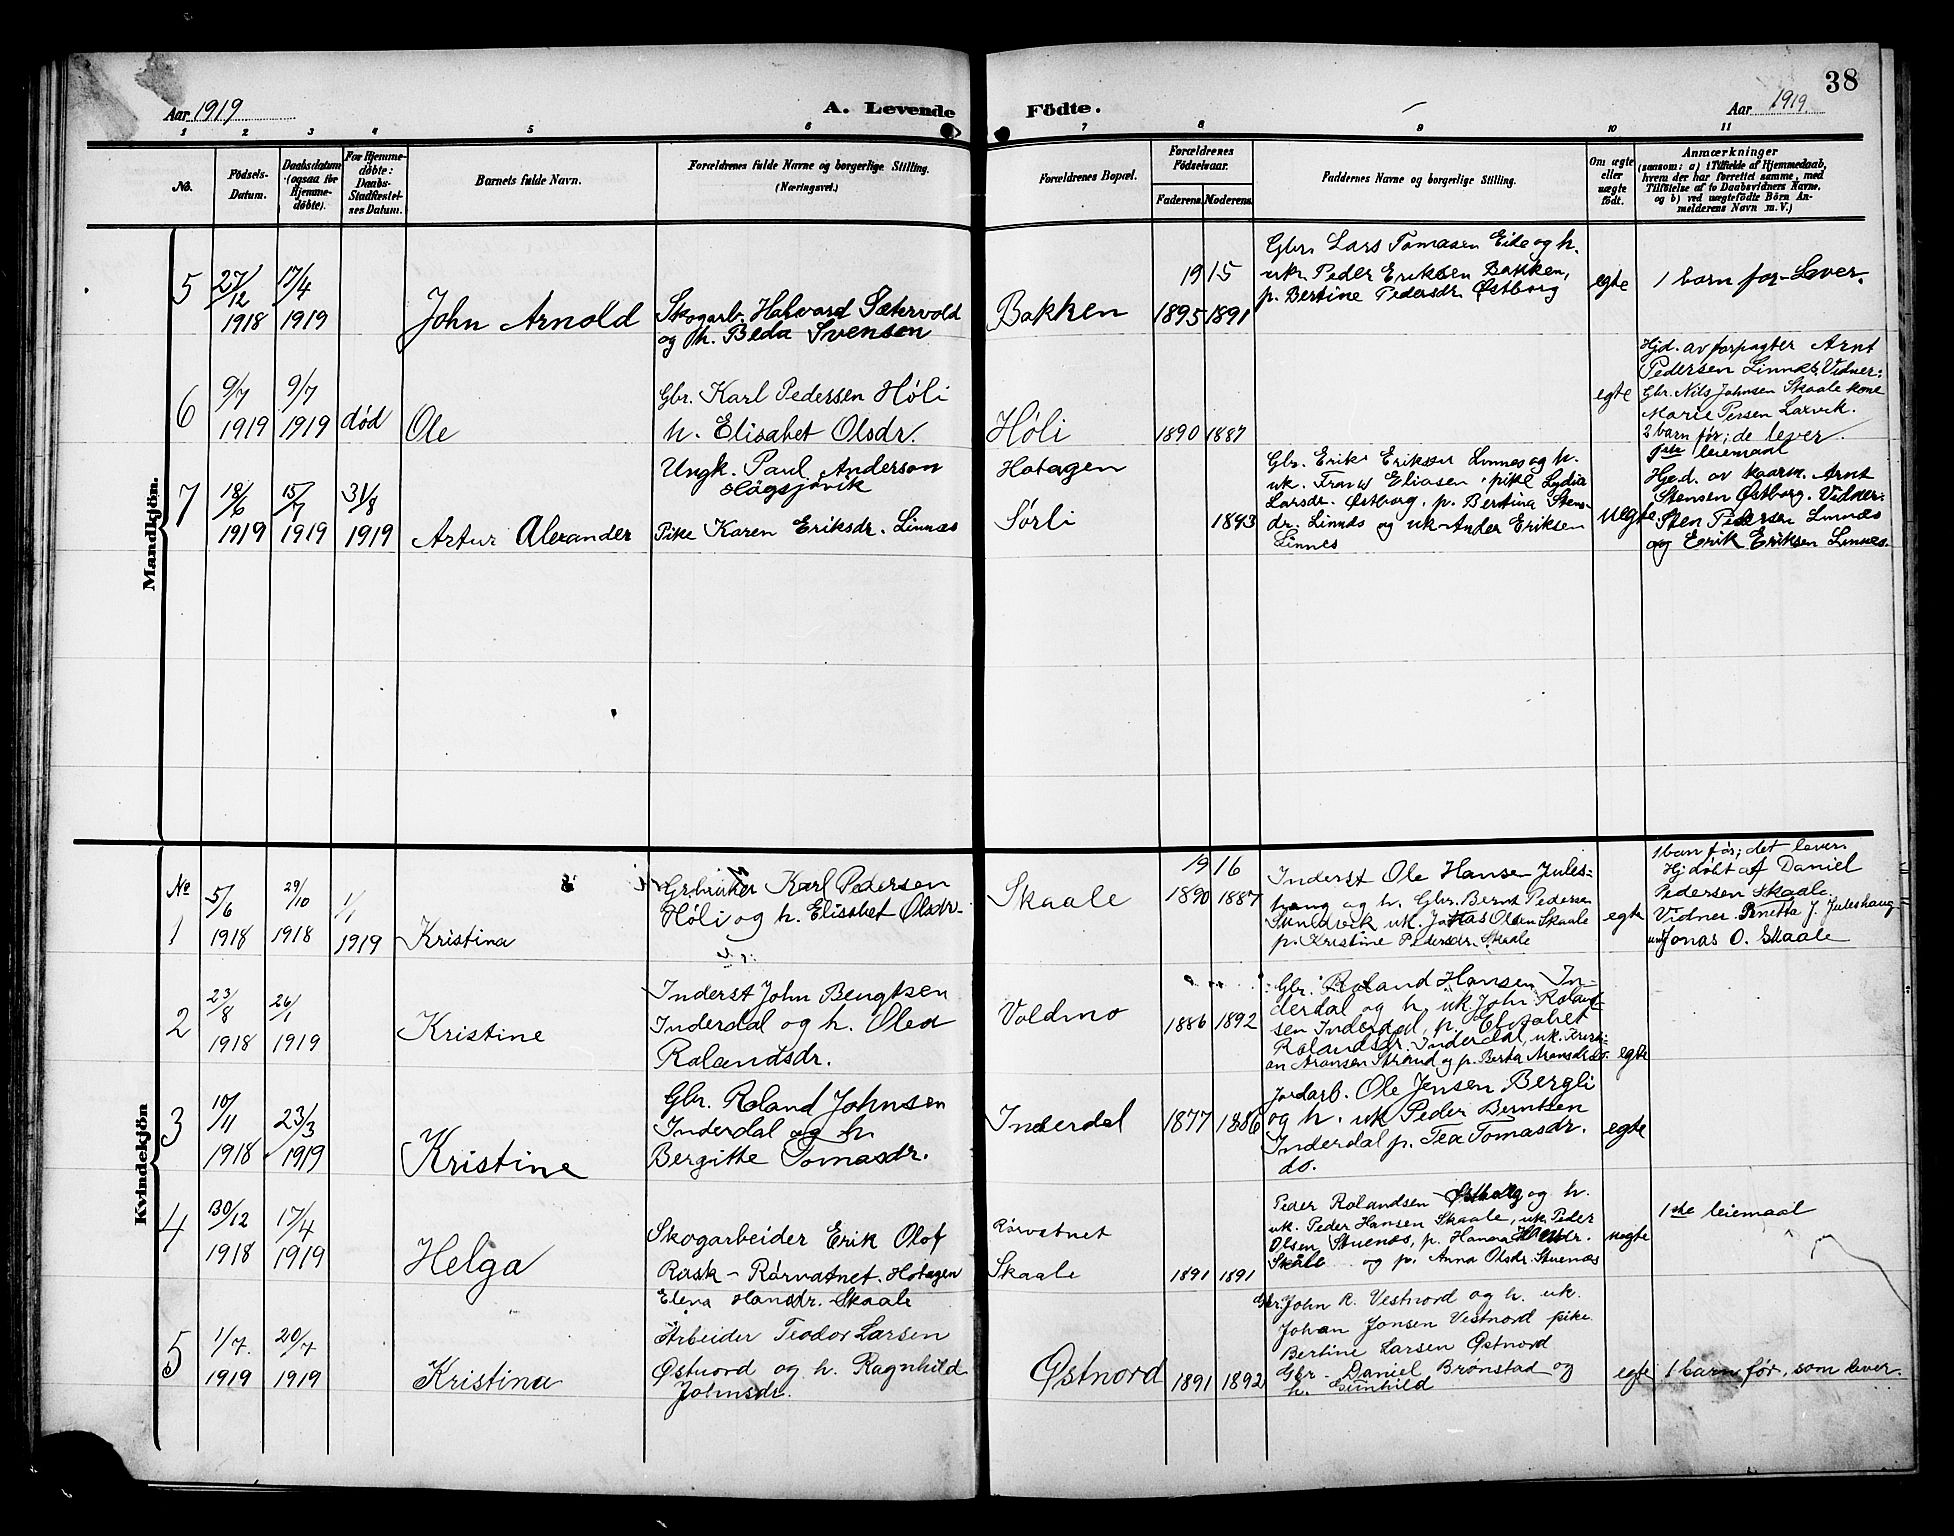 38
Aar 1919
A. Levende Födte.
Aar 1919
1 2 3 4 5 6 7 8 9 10 11
No.
Födsels-
Datum.
Daabsdatum
(ogsaa for
Hjemme-
döbte).
For Hjemme-
döbte:
Daabs-
Stadfæstel-
ses Datum.
Barnets fulde Navn.
Forældrenes fulde Navne og borgerlige Stilling.
(Næringsvei.)
Forældrenes Bopæl.
Forældrenes
Födselsaar.
Faderens. Moderens.
Faddernes Navne og borgerlige Stilling.
Om ægte
eller
uægte
födt.
Anmærkninger
(saasom: a) i Tilfælde af Hjemmedaab,
hvem der har forrettet samme, med
Tilföielse af to Daabsvidners Navne,
og b) ved uægtefödte Börn An-
melderens Navn m. V.)
Mandkjön.
5
27/12
1918
17/4
1919
John Arnold
Skogarb. Halvard Sætervold
og h. Beda Svensen
Bakken
19 15
1895 1891
Gbr. Lars Tomasen Eide og h.
uk. Peder Eriksen Bakken,
p. Bertine Pedersdr. Østborg
egte
1 barn før - Lever.
6
9/7
1919
9/7
1919
død
Ole
Gbr. Karl Pedersen Høli
h. Elisabet Olsdr.
Høli
1890 1887
egte
Hjd. av forpagter Arnt
Pedersen Linnes. Vidner:
Gbr. Nils Johnsen Skaale kone
Marie Persen Laxvik.
2 barn før; de lever.
7
18/6
1919
15/7
1919
31/8
1919
Artur Alexander
Ungk. Paul Anderson
Högsjövik
Pike Karen Eriksdr. Linnes
Hotagen
Sørli
1893
Gbr. Erik Eriksen Linnes og h.
uk. Frans Eliasen, pike Lydia
Larsdr. Østborg, p. Bertina Stens-
dr. Linnes og uk. Ander Eriksen
Linnes
uegte
1ste leiemaal
Hjed. av kaarm. Arnt
Stensen Østborg. Vidner:
Sten Pedersen Linnes
og Erik Eriksen Linnes.
Kvindekjön
No
1
5/6
1918
29/10
1918
1/1
1919
Kristina
Grbruker Karl Pedersen
Høli og h. Elisabet Olsdr.
Skaale
19 16
1890 1887
Inderst Ole Hansen Jules-
haug og h. Gbr. Bernt Pedersen
uk. Jonas Olsen Skaale
p. Kristine Pedersdr. Skaale
egte
1 barn før; det lever.
Hjdøbt af Daniel
Pedersen Skaale.
Vidner. Penetta J. Juleshaug
Jonas O. Skaale
2
23/8
1918
26/1
1919
Kristine
Inderst John Bengtsen
Inderdal og h. Olea
Rolandsdr.
Voldmo
1886 1892
Gbr. Roland Hansen In-
derdal og h. uk John Roland-
sen Inderdal, p. Elisabet
Rolandsdr. Inderdal, uk. Kristi-
an Aronsen Strand og p. Berta Aronsdr. do.
egte
3
10/11
1918
23/3
1919
Kristine
Gbr. Roland Johnsen
Inderdal og h.
Bergitte Tomasdr.
Inderdal
1877 1886
Jordarb. Ole Jensen Bergli
og h. uk Peder Berntsen
Inderdal p. Tea Tomasdr.
do.
egte
4
30/12
1918
17/4
1919
Helga
Skogarbeider Erik Olof
Rask - Rörvatnet. Hotagen
Elena Hansdr. Skaale
Rörvatnet
Skaale
1891 1891
Peder Rolandsen Østborg og h.
uk. Peder Hansen Skaale, uk. Peder
Olsen Stuenæs, p. Hanna Hansdr.
Skåle og p. Anna Olsdr. Stuenæs
uegte
1ste leiemaal
5
1/7
1919
20/7
1919
Kristina
Arbeider Teodor Larsen
Østnord og h. Ragnhild
Johnsdr.
Østnord
1891 1892
Gbr. John R. Vestnord og h. uk.
Johan Jonsen Vestnord pike
Bertine Larsen Østnord
Gbr. Daniel Brønstad og
h. Gunhild
egte
1 barn før, som lever.